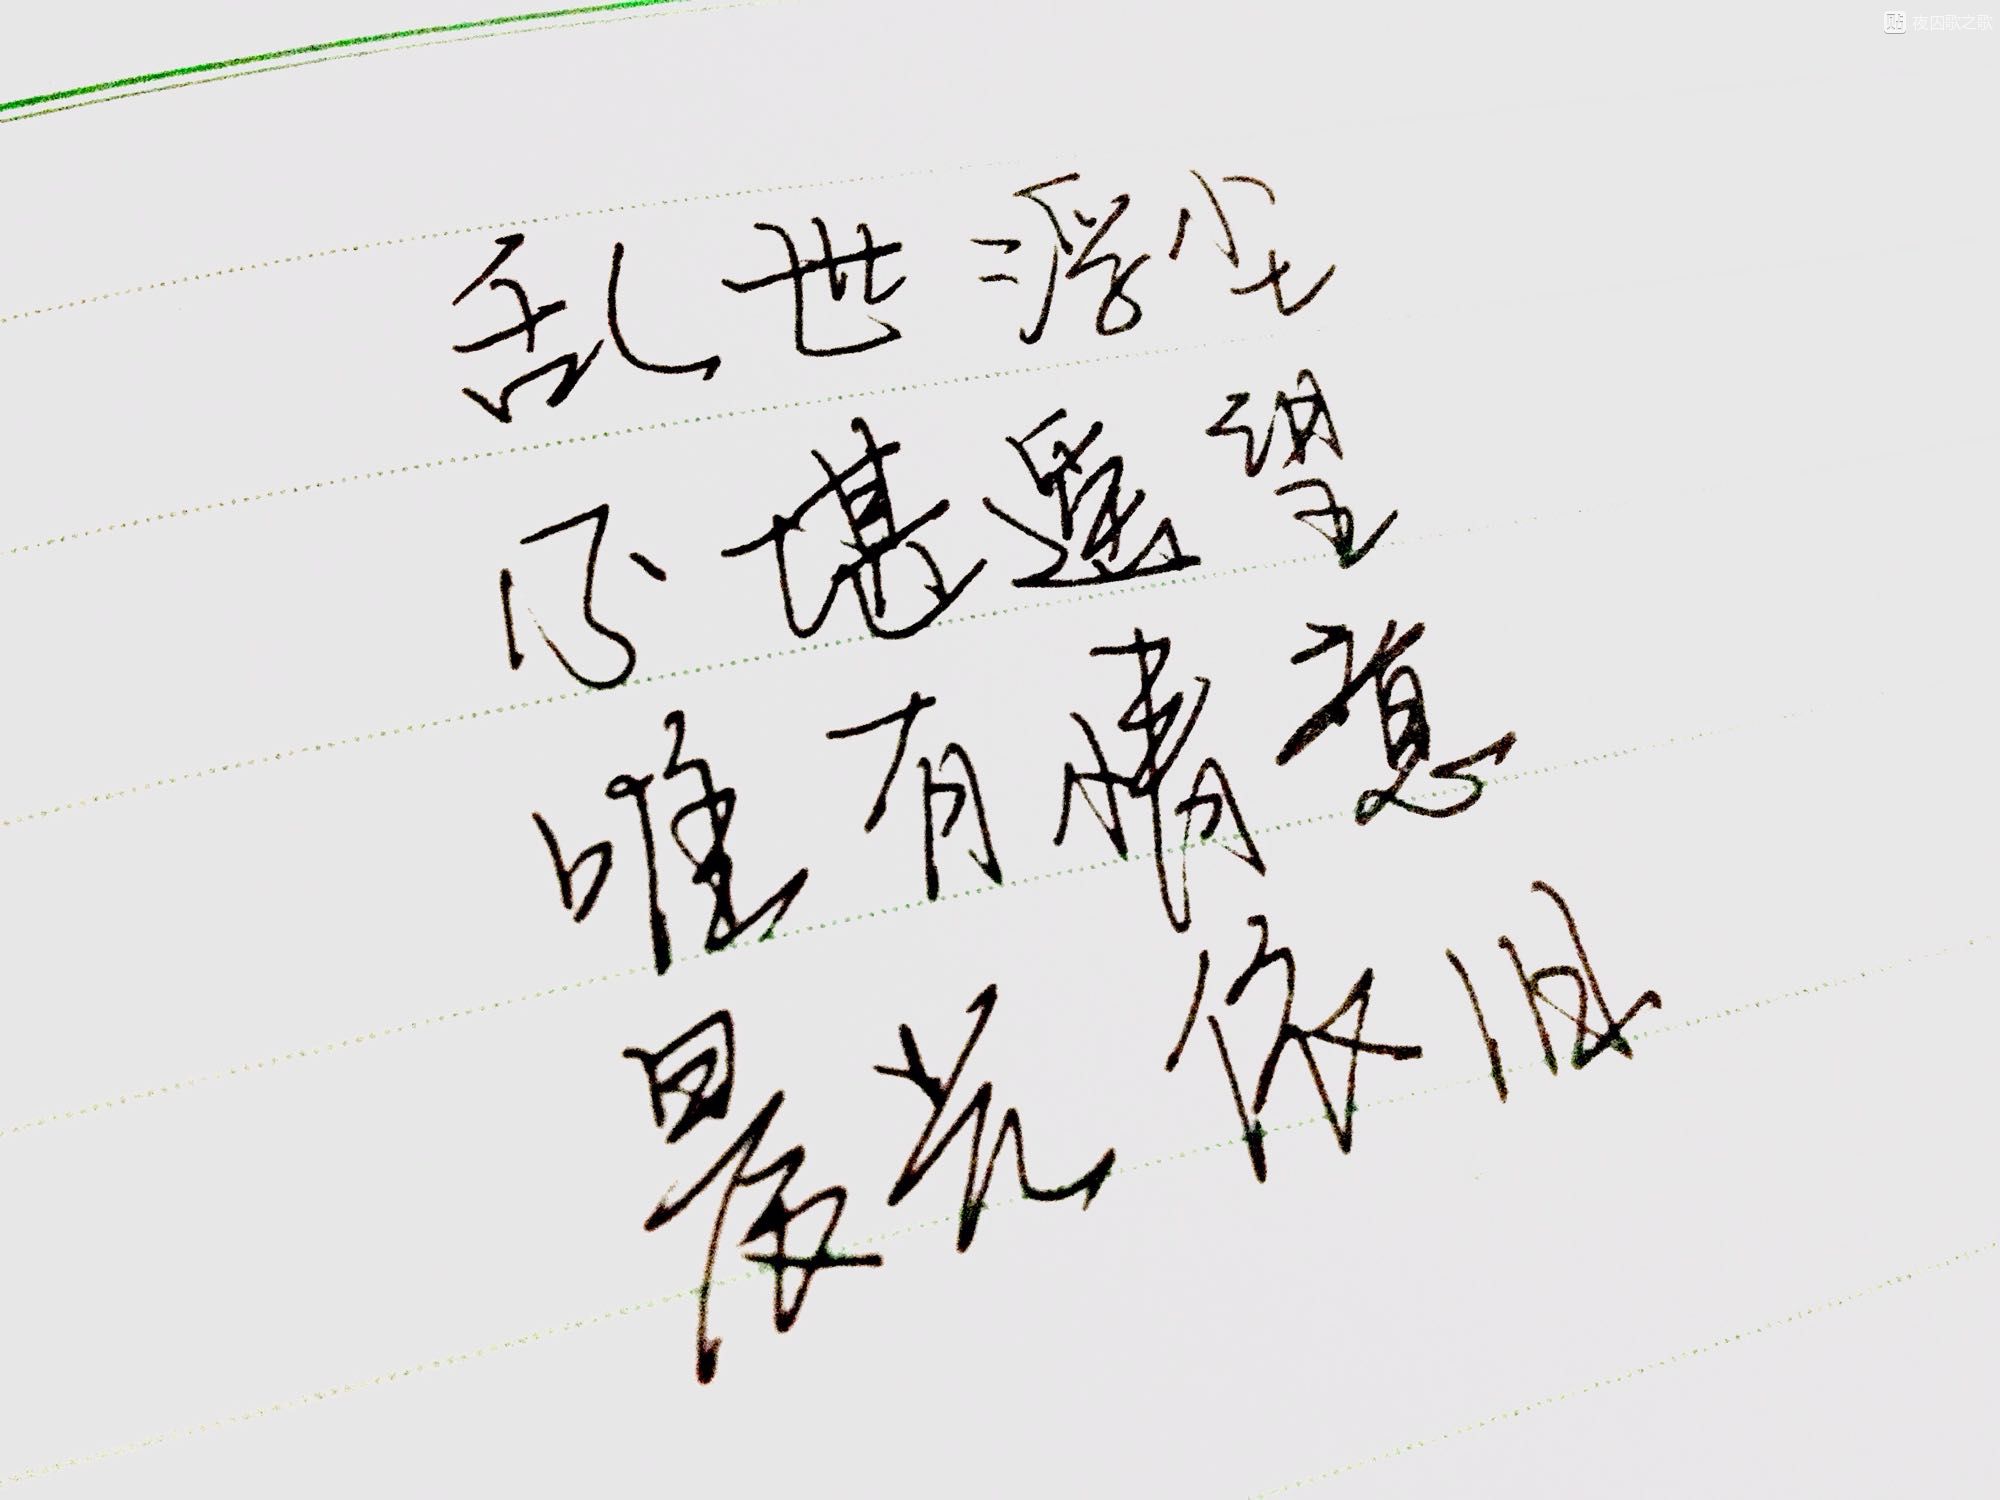 夜囚歌之歌
乱世浮尘
不堪遥望
唯有情意
最荒依旧